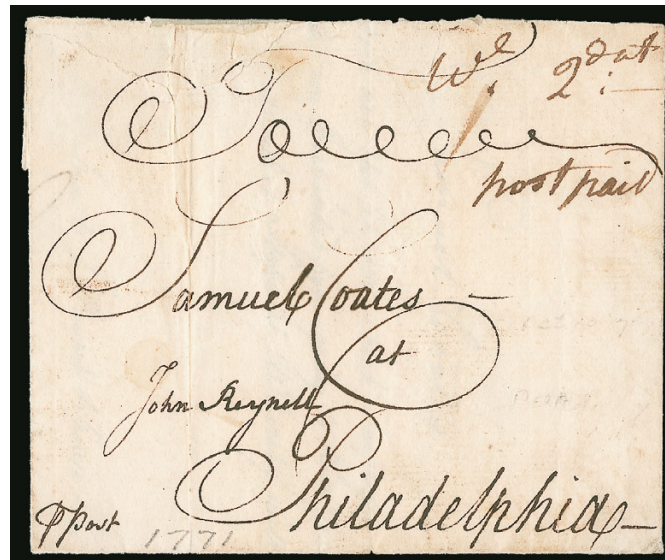 To
post paid
Samuel Coates
at
John Reynell
Philadelphia
⅌ post
1771